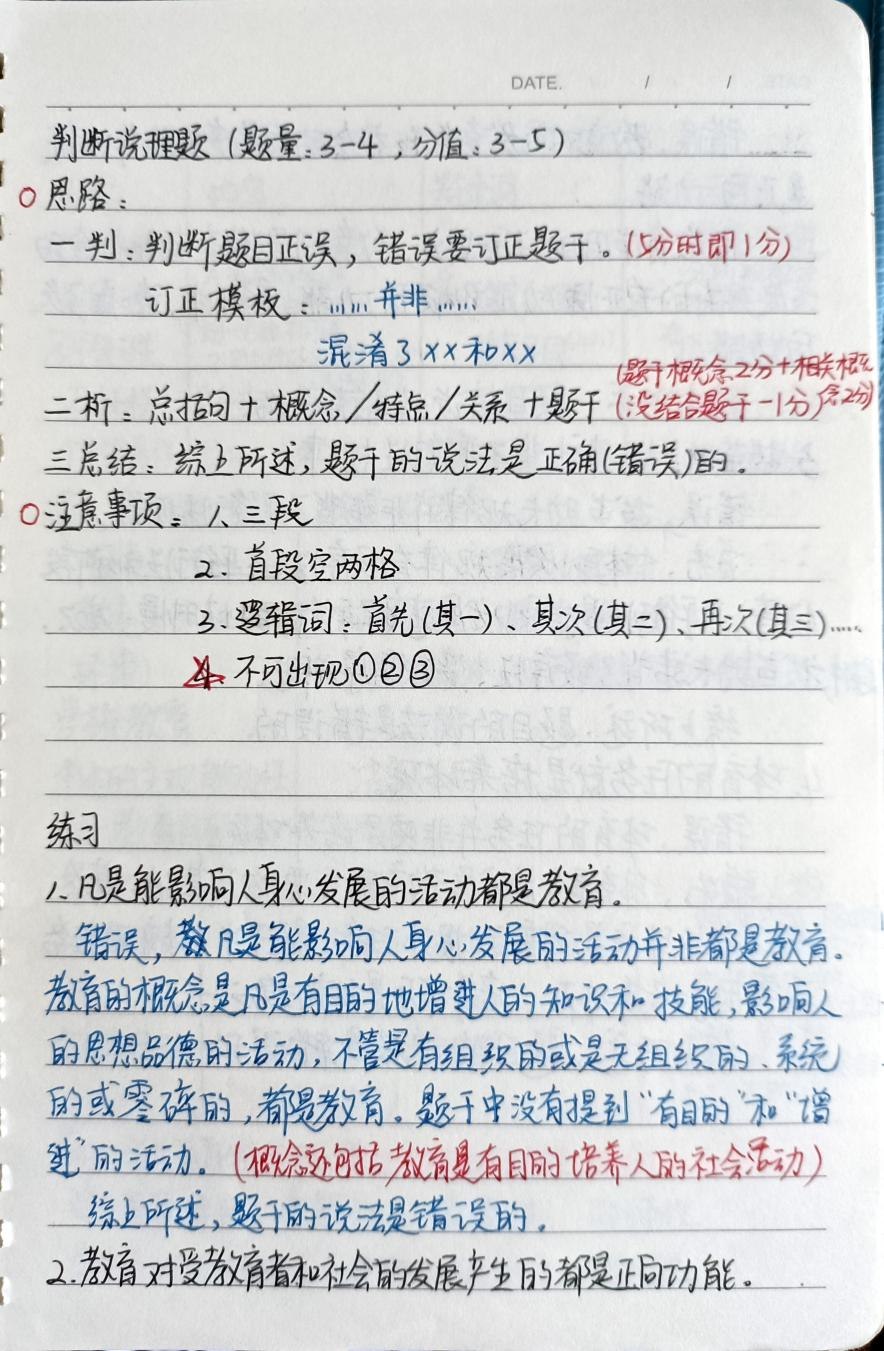 DATE. / /
判断说理题（题量：3-4，分值：3-5）
思路：
一判：判断题目正误，错误要订正题干。（5分时即1分）
订正模板：……并非……
混淆了××和××
（题干概念2分+相关概念2分）
二析：总括句+概念/特点/关系+题干（没结合题干-1分）
三总结：综上所述，题干的说法是正确(错误)的。
注意事项：1、三段
2、首段空两格
3、逻辑词：首先(其一)、其次(其二)、再次(其三)……
4. 不可出现①②③
练习
1、凡是能影响人身心发展的活动都是教育。
错误，凡是能影响人身心发展的活动并非都是教育。
教育的概念是凡是有目的地增进人的知识和技能，影响人
的思想品德的活动，不管是有组织的或是无组织的、系统
的或零碎的，都是教育。题干中没有提到“有目的”和“增
进”的活动。（概念还包括教育是有目的培养人的社会活动）
综上所述，题干的说法是错误的。
2.教育对受教育者和社会的发展产生的都是正向功能。